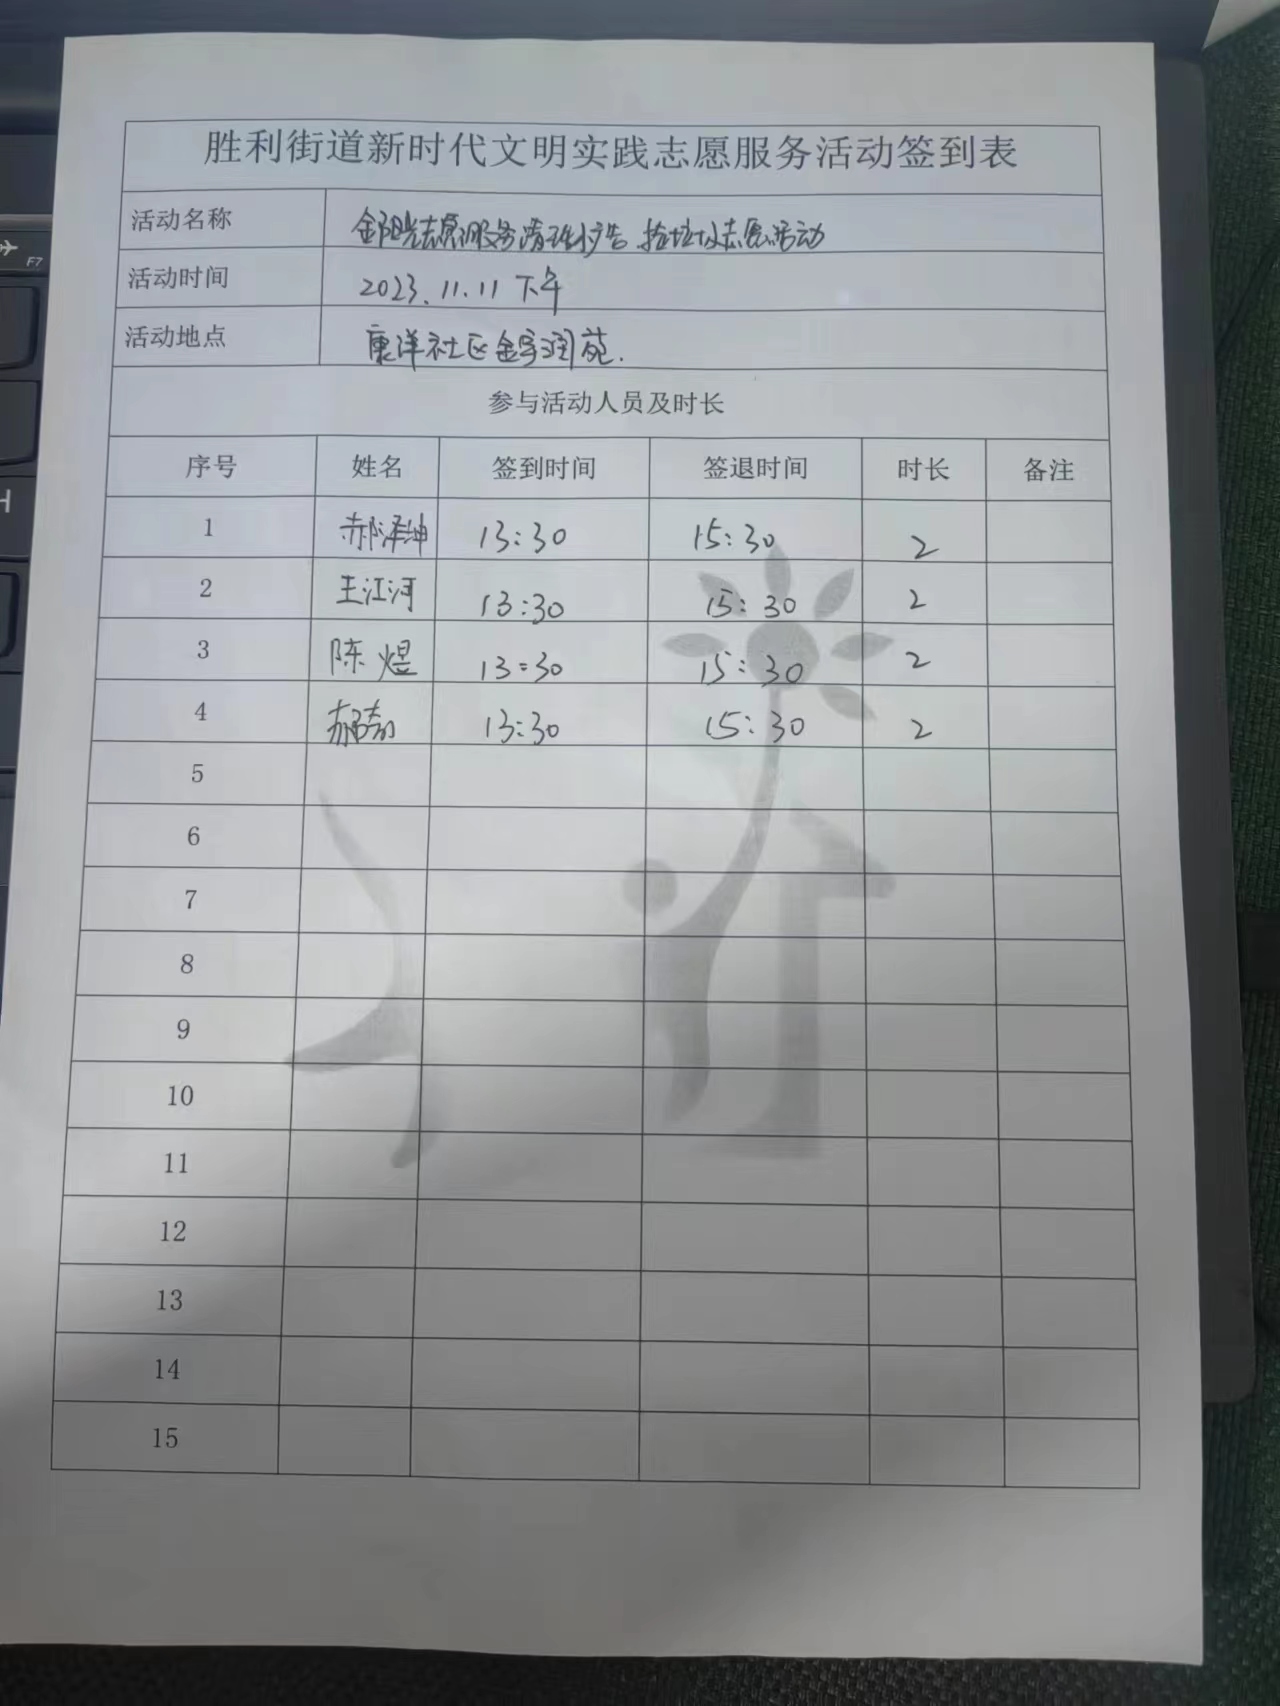 胜利街道新时代文明实践志愿服务活动签到表
活动名称 金阳光志愿服务清理广告 捡垃圾志愿活动
活动时间 2023.11.11 下午
活动地点 康洋社区金宇润苑.
参与活动人员及时长
序号 姓名 签到时间 签退时间 时长 备注
1 郝泽坤 13:30 15:30 2
2 王江河 13:30 15:30 2
3 陈煜 13:30 15:30 2
4 13:30 15:30 2
5
6
7
8
9
10
11
12
13
14
15
F7
H